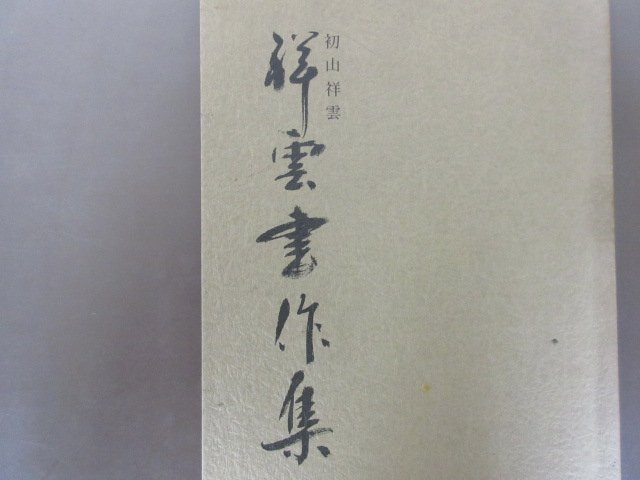 初山祥雲
祥雲書作集